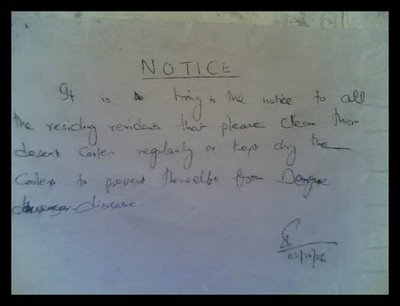 NOTICE
It is to bring to the notice to all
the residing residents that please clean their
desert Cooler regularly or kept dry the
Coolers to prevent themselfs from Dengue
disease